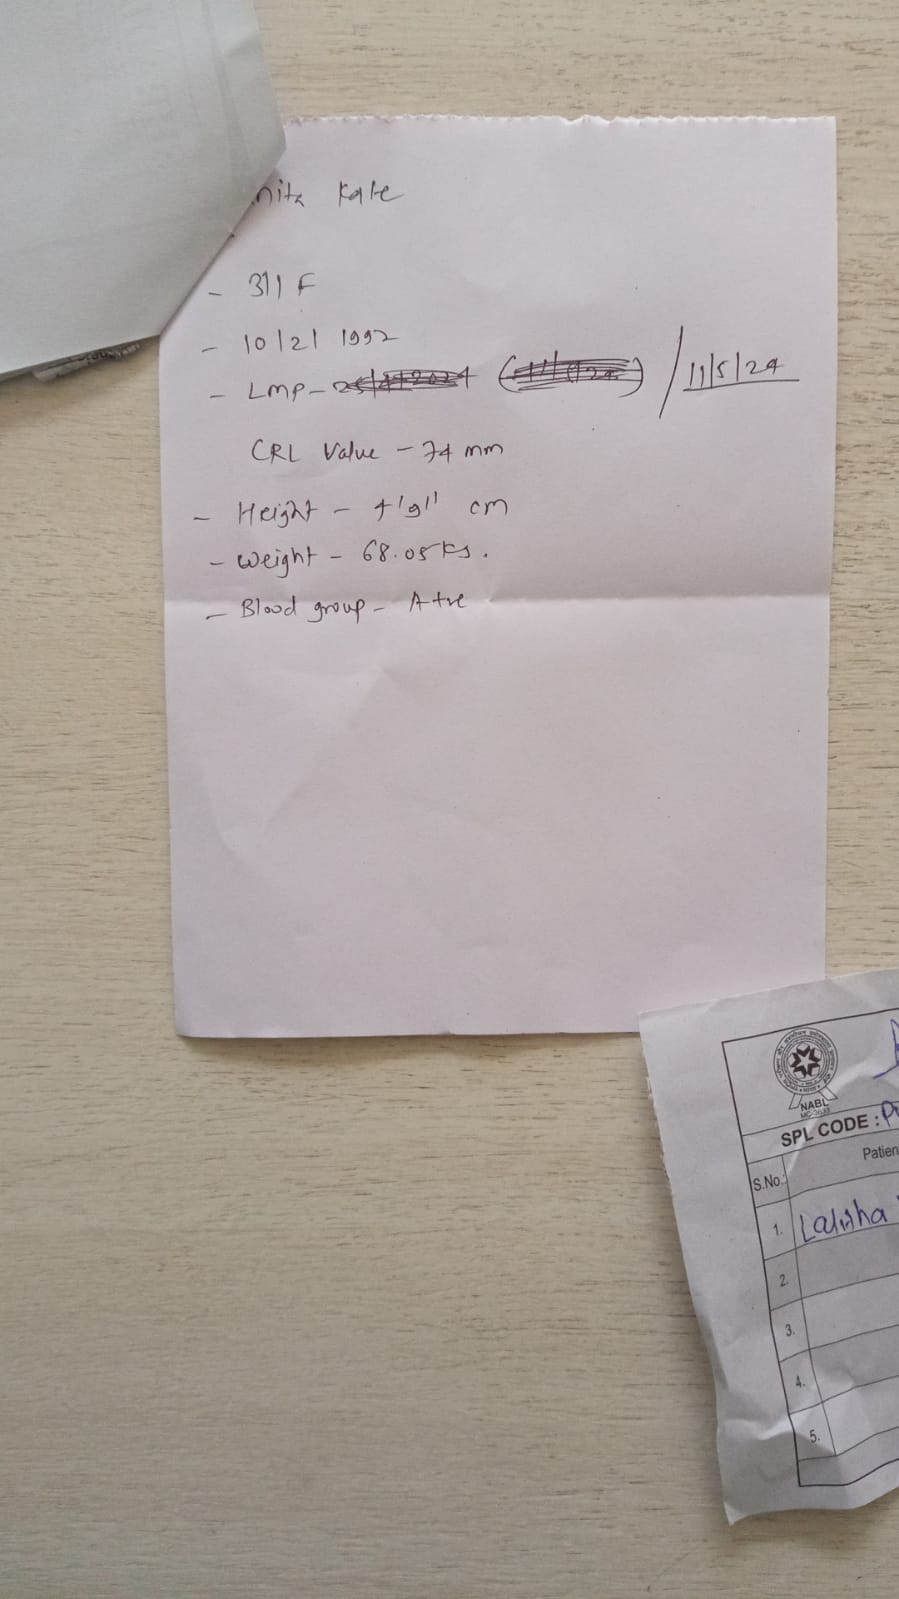 Kale
- 31/F
- 10/2/1992
- LMP - 11/5/24
CRL Value - 74 mm
- Height - 4'9" cm
- Weight - 68.05 ks.
- Blood group - A+ve
NABL
SPL CODE :
Patien
S.No.
1. Lalisha
2.
3.
4.
5.